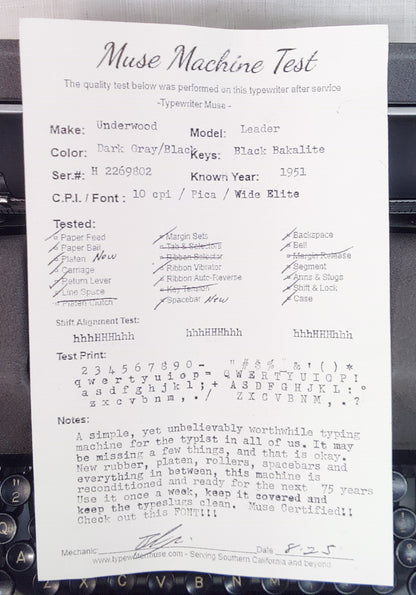 Muse Machine Test
The quality test below was performed on this typewriter after service
-Typewriter Muse -
Make: Underwood Model: Leader
Color: Dark Gray/Black Keys: Black Bakalite
Ser.#: H 2269802 Known Year: 1951
C.P.I. / Font: 10 cpi / Pica / Wide Elite
Tested:
Paper Feed Margin Sets Backspace
Paper Bail Tab & Selectors Bell
Platen New Ribbon Selector Margin Release
Carriage Ribbon Vibrator Segment
Return Lever Ribbon Auto-Reverse Arms & Slugs
Line Space Key Tension Shift & Lock
Platen Clutch Spacebar New Case
Shift Alignment Test:
hhhHHHhhh hhhHHHhhh hhhHHHhhh
Test Print:
2 3 4 5 6 7 8 9 0 - " # $ % & ' ( ) *
q w e r t y u i o p = Q W E R T Y U I O P !
a s d f g h j k l ; + A S D F G H J K L :
z x c v b n m , . / Z X C V B N M , . ?
Notes:
A simple, yet unbelievably worthwhile typing
machine for the typist in all of us. It may
be missing a few things, and that is okay.
New rubber, platen, rollers, spacebars and
everything in between, this machine is
reconditioned and ready for the next 75 years
Use it once a week, keep it covered and
keep the typeslugs clean. Muse Certified!!
Check out this FONT!!!
Mechanic: Date 8-25
www.typewritermuse.com - Serving Southern California and beyond
2
Q
A
Z X C V B N M